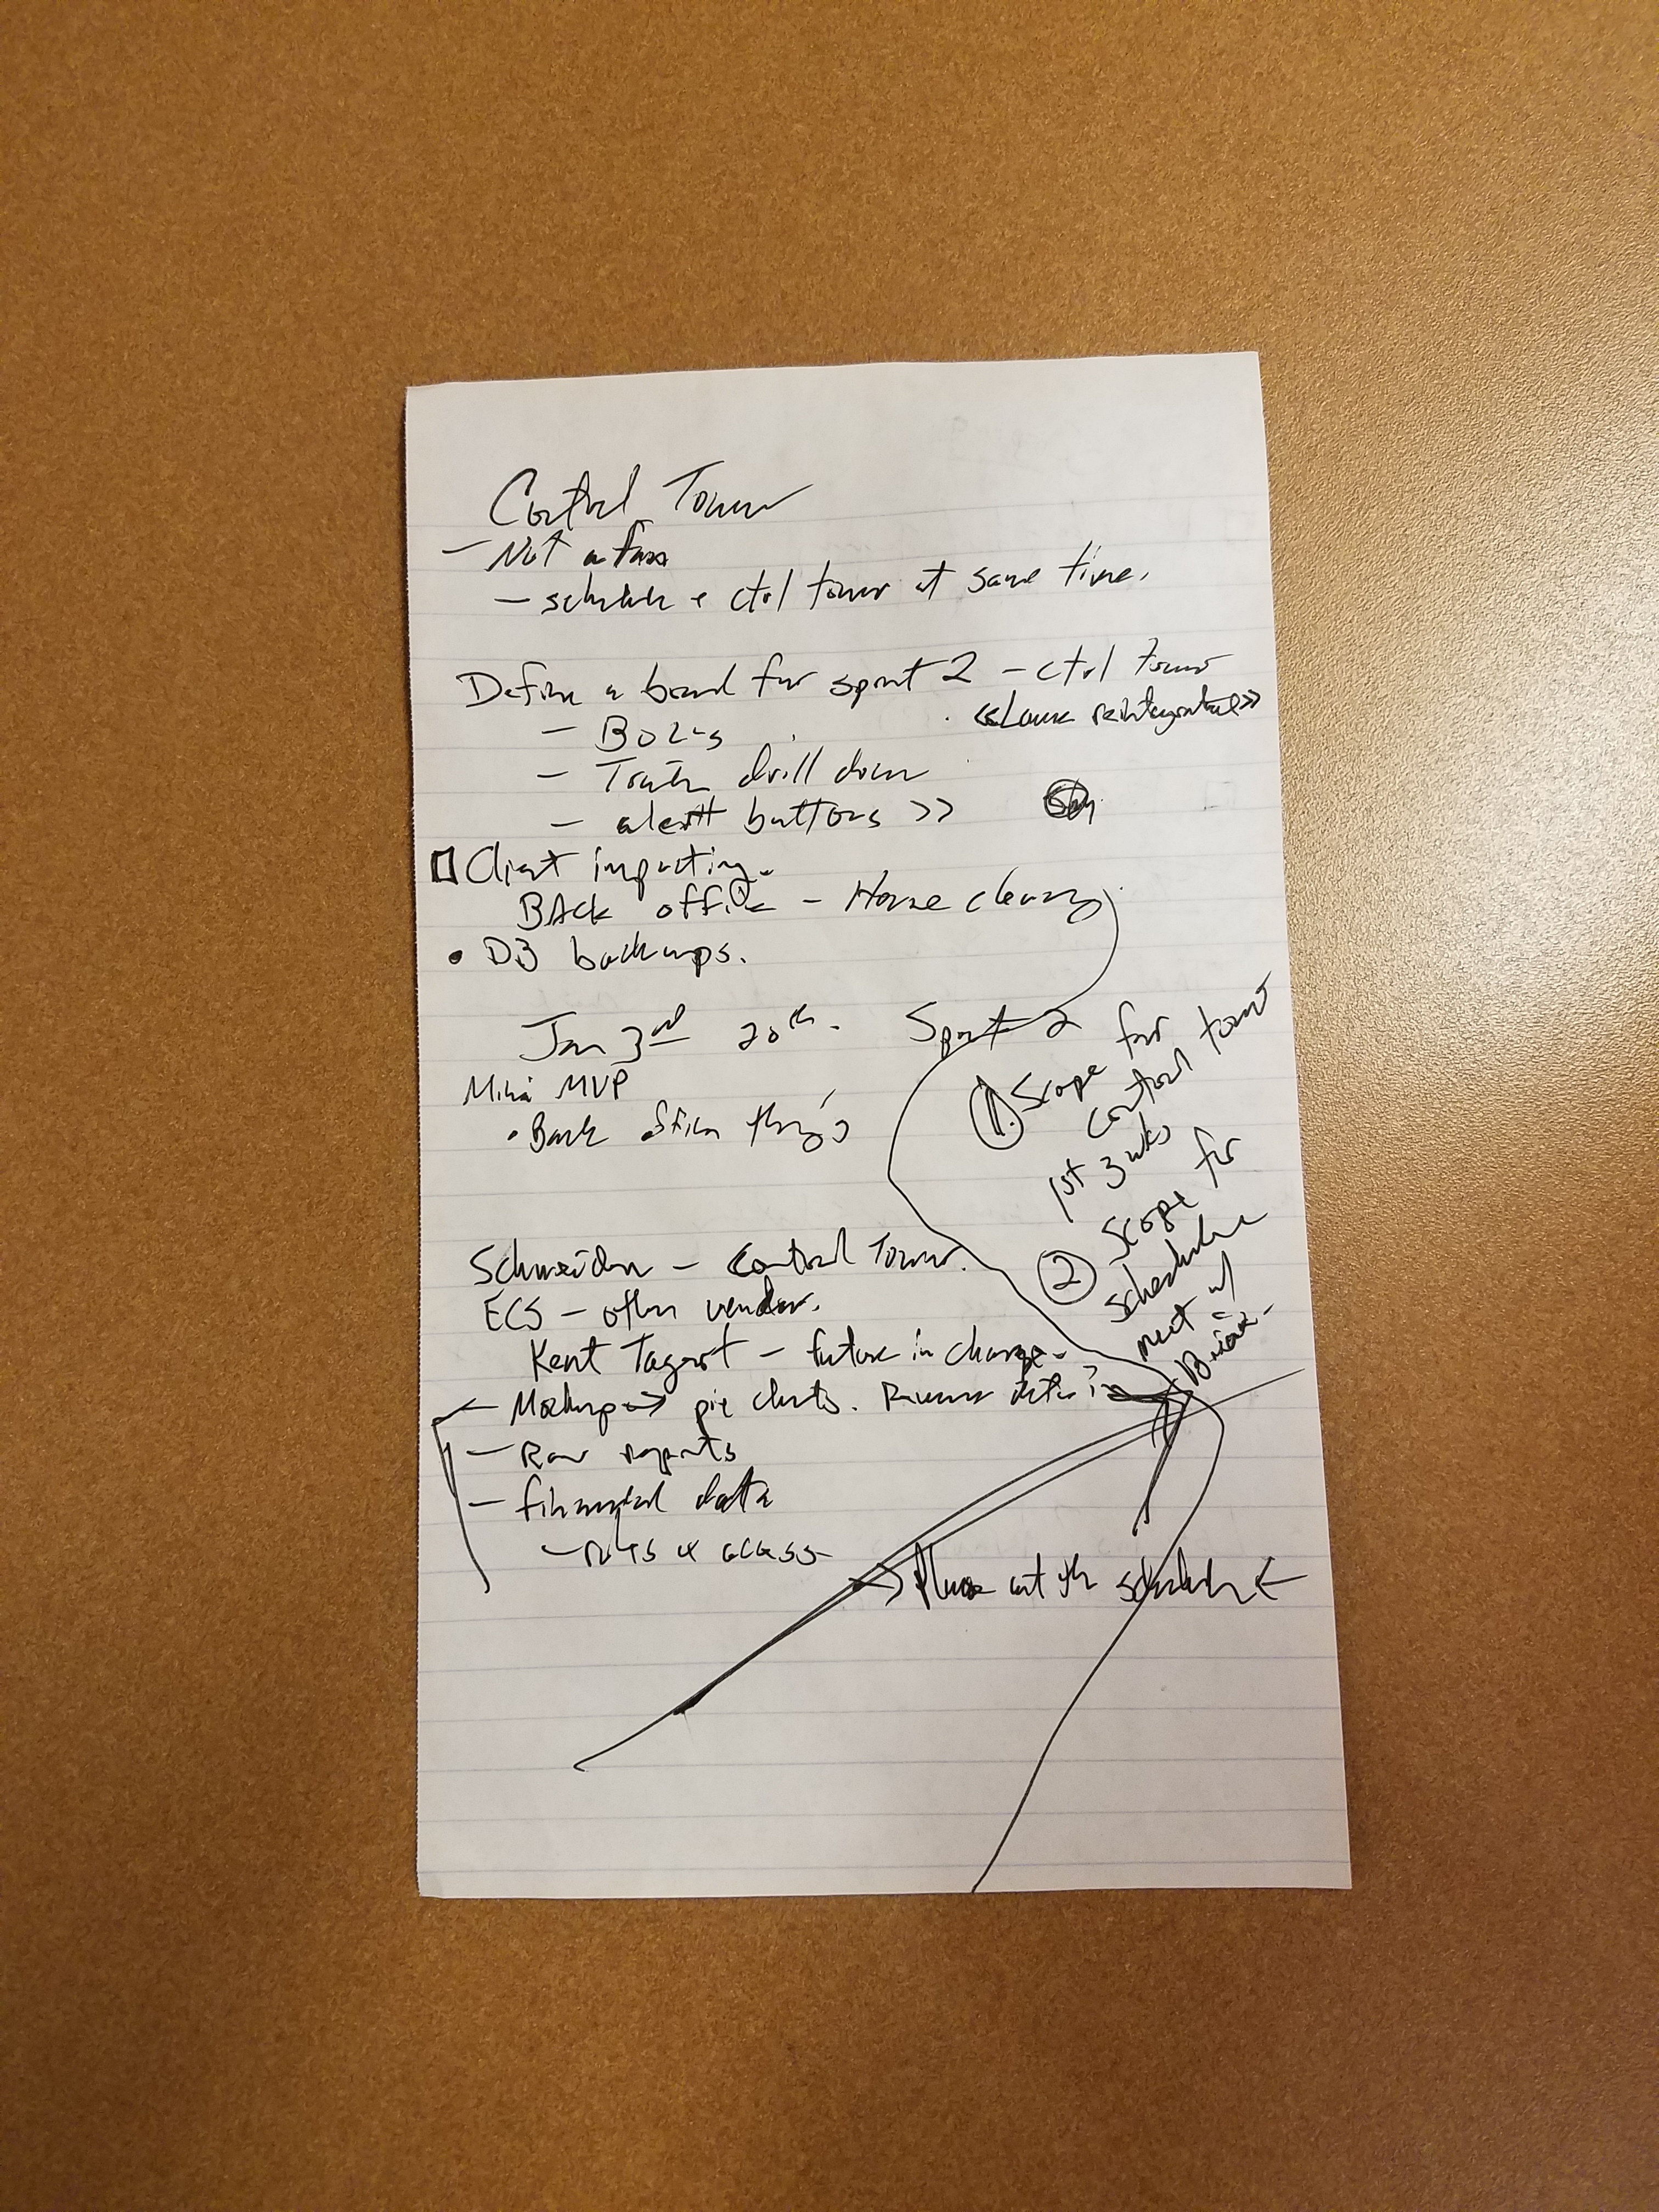 Control Tower
- Not a
- schedule + ctrl tower at same time.
Define a board for sprint 2 - ctrl tower
-
- drill down
- alert buttons >>
Client importing.
BAck office - House cleaning
• DB backups.
Jan 3rd 20th. Sprint 2
Mini MVP
• Back office things
① Scope for
control tower
1st 3 wks
② Scope for
Schedule
meet w/
Brian.
Schneider - Control Tower.
ECS - other vendor.
Kent Tagert - future in charge.
- Mockup → pie charts. data in
- Raw reports
- financial data
- access
→ out the schedule ←